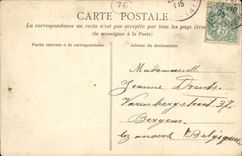 76
CARTE POSTALE
La correspondance au recto n'est pas acceptée par tous les pays étrangers
(se renseigner à la Poste)
Partie réservée à la correspondance
Adresse du destinataire
Mademoiselle
Jeanne
37
Berchem
lez anvers Belgique